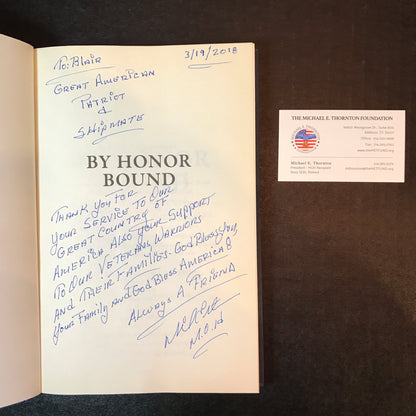 To: Blair
3/19/2018
Great American
Patriot
&
Shipmate
BY HONOR
BOUND
Thank you For
your Service To Our
Great Country of
America Also your Support
To Our Veterans, Warriors
And Their Families. God Bless you,
your Family and God Bless America!
Always A Friend
M.O.H
THE MICHAEL E. THORNTON FOUNDATION
Michael E. Thornton
President - MOH Recipient
Navy SEAL, Retired